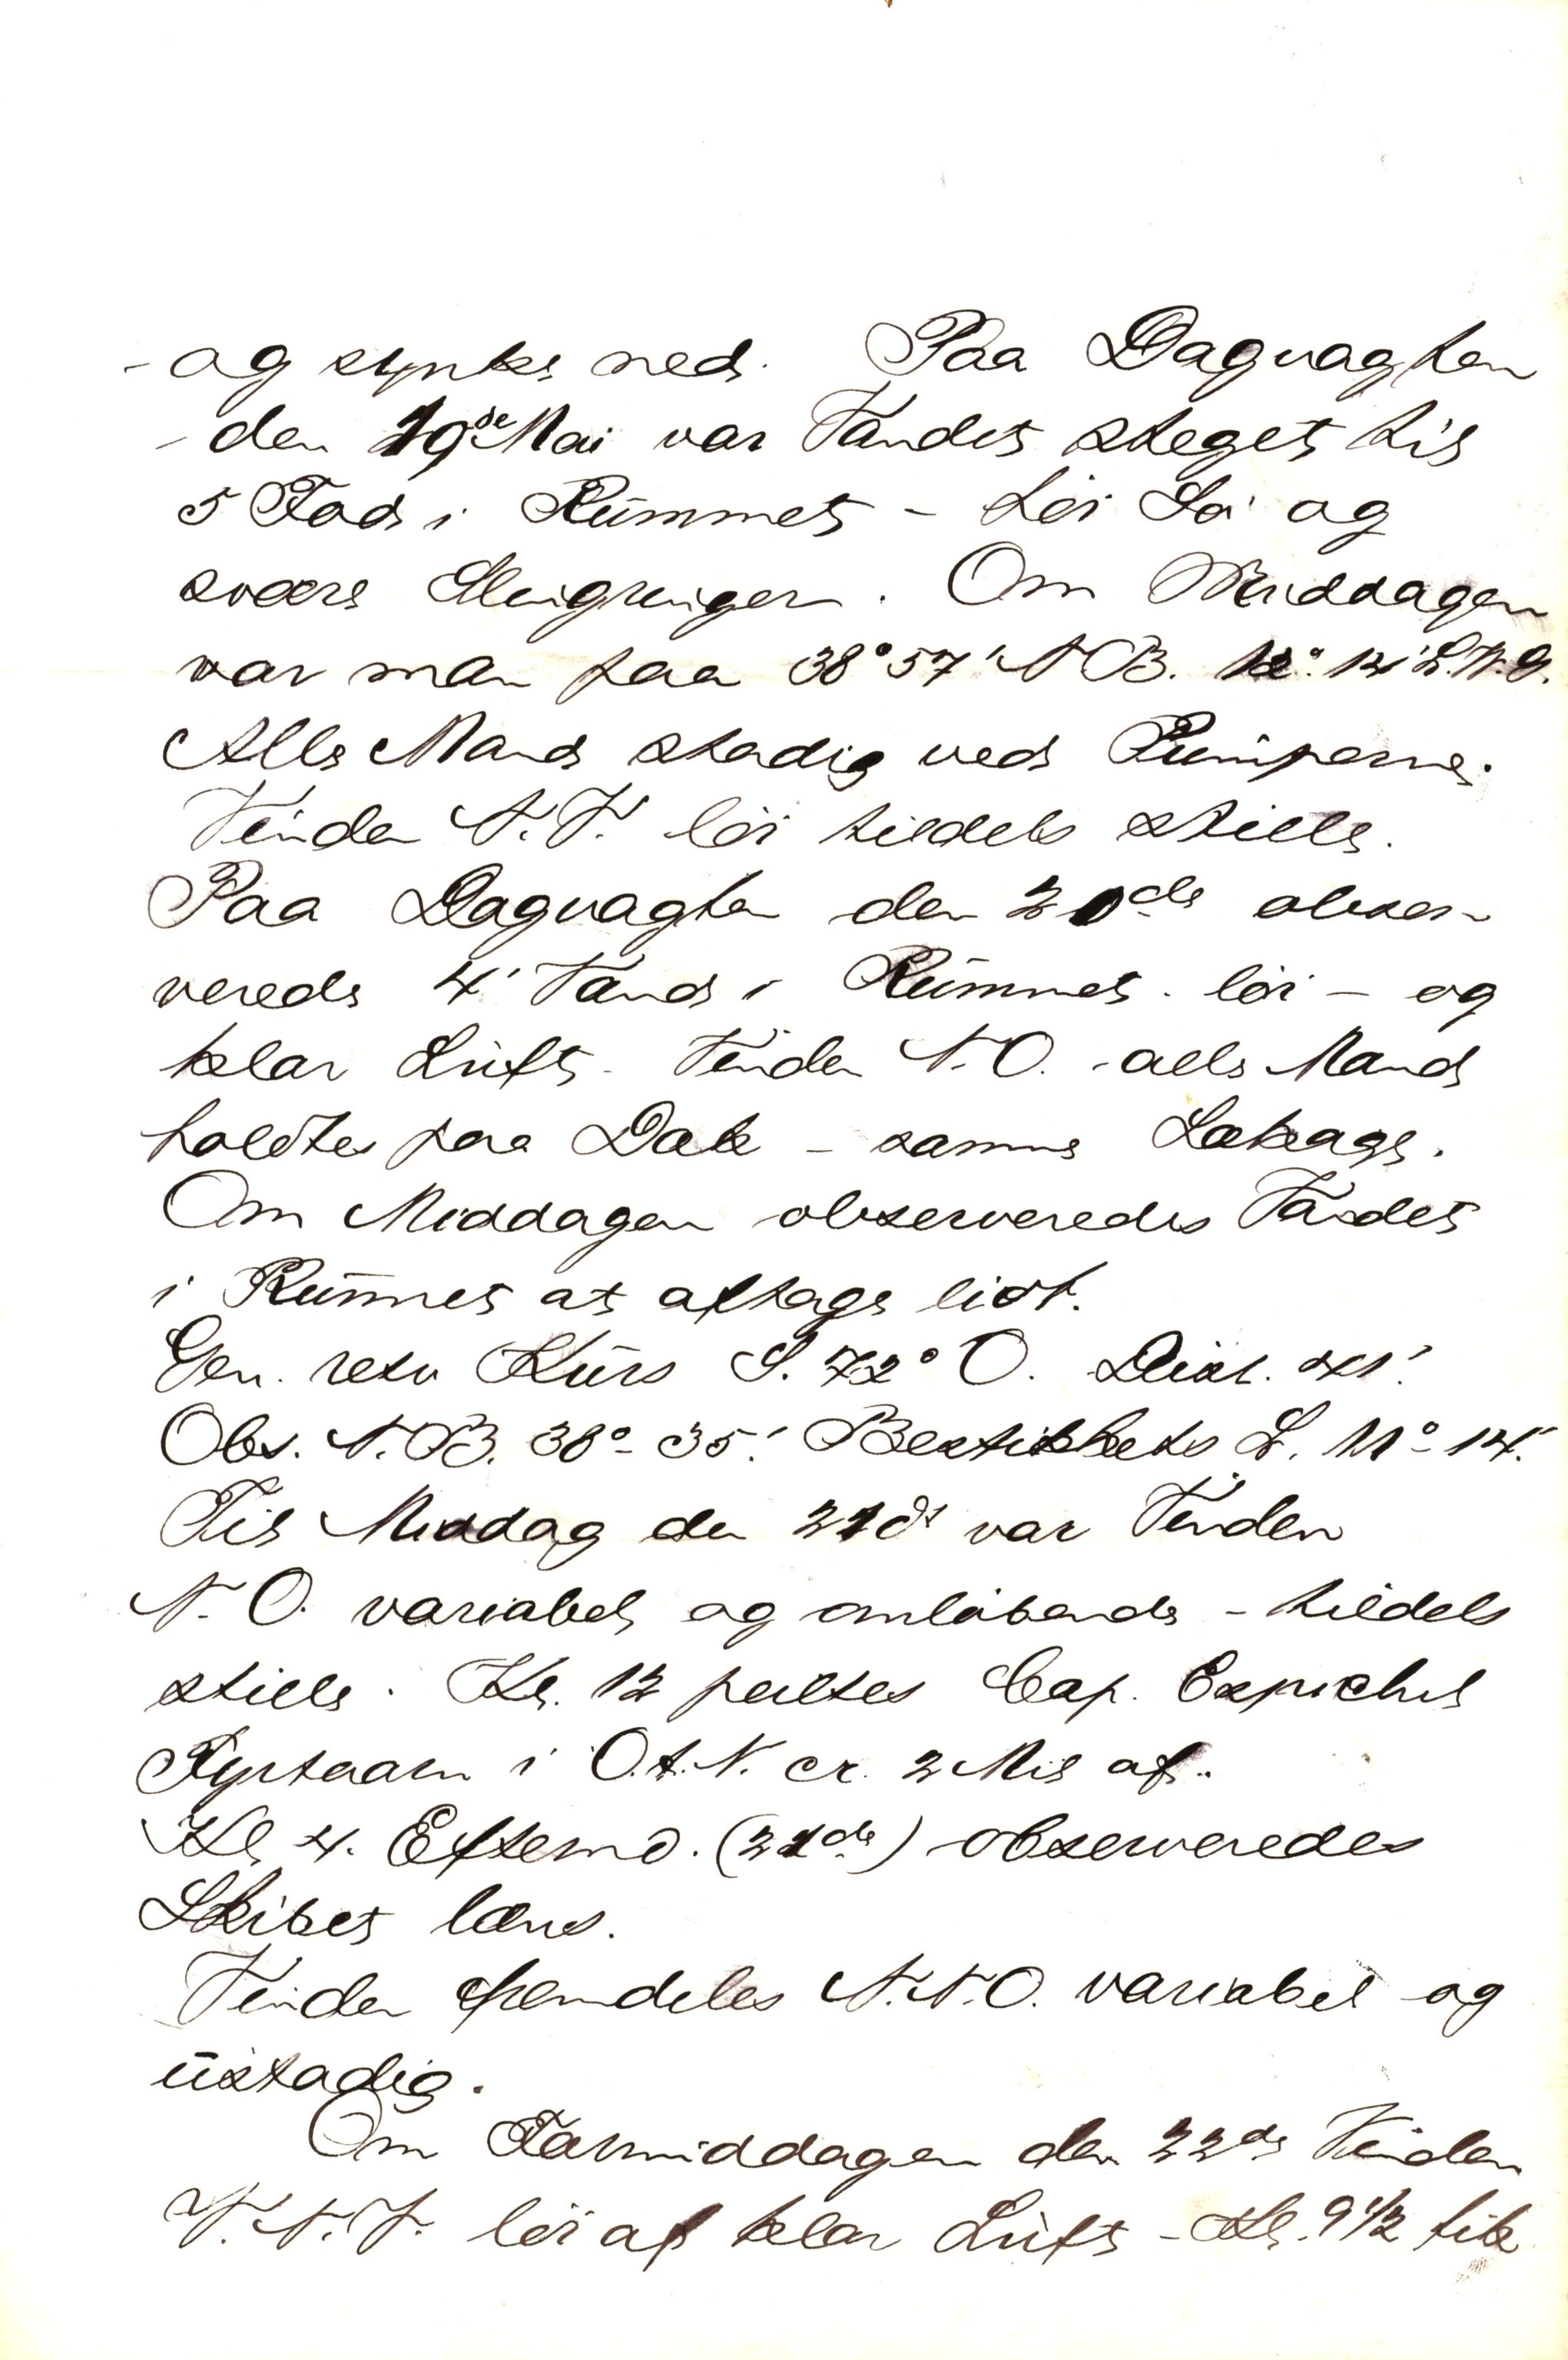 - og synke ned. Paa Dagvagten
- den 19de Mai var Vandet steget til
5 Fod i Rummet - høi Sø og
svære Slingringer. Om Middagen
var man paa 38° 57' N B. 12° 14' L.V.G.
Alle Mand stadig ved Pumperne.
Vinden N.V. løi tildels stille.
Paa Dagvagten den 20de obser-
verede 4' Vand i Rummet. løi - og
klar Luft. Vinden N.O. - alle Mand
holdtes paa Dæk - samme Lækage.
Om Middagen observeredes Vandet
i Rummet at aftage lidt.
Gen. retv Kurs S. 72° O. Dist. 71'.
Obs. N.B. 38° - 35'. Bestikkets L. 11° - 14'.
Til Middag den 21de var Vinden
N.O. variabel og omløbende - tildels
stille. Kl. 12 peiltes Cap. Espichel
Fyrtaarn i O.t.N. cr. 2 Mil af.
Kl. 4. Eftermd. (21de) observeredes
Skibet læns.
Vinden fremdeles N.N.O. variabel og
ustadig.
Om Formiddagen den 22de Vinden
N.N.V. løi af klar Luft - Kl. 9 1/2 fik